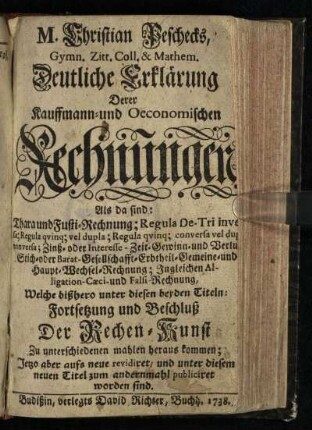 M. Christian Peschecks,
Gymn. Zitt. Coll. & Mathem.
Deutliche Erklärung
Derer
Kauffmann-und Oeconomischen
Rechnungen
Als da sind:
Thara und Fusti-Rechnung; Regula De-Tri Inve
Regula qvinq; vel dupla; Regula qvinq; conversa vel du
Zinß- oder Interesse-Zeit-Gewinn-und Verlu
Stich-oder Barat-Gesellschafft-Erbtheil-Gemeine-und
Haupt-Wechsel-Rechnung; Ingleichen Al-
ligation-Cæci-und Falsi-Rechnung,
Welche bißhero unter diesen beyden Titeln:
Fortsetzung und Beschluß
Der Rechen-Kunst
Zu unterschiedenen mahlen heraus kommen;
Jetzo aber aufs neue revidiret, und unter diesem
neuen Titel zum andernmahl publiciret
worden sind.
Budißin, verlegts David Richter, Buchh. 1738.